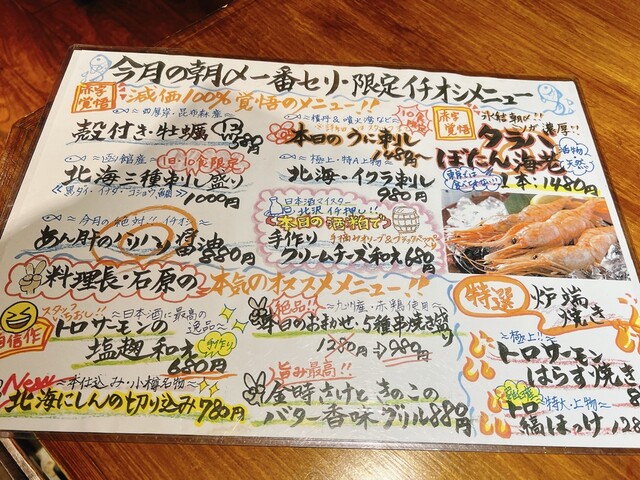 今月の朝〆一番セリ・限定イチオシメニュー
赤字覚悟
減価100%覚悟のメニュー!!
〜厚岸・昆布森産〜
殻付き・牡蠣 1コ 580円
10食限定
本日のうに刺し
980円
〜函館産〜
1日・10食限定
北海三種刺し盛り
1000円
〜極上・特A上物〜
北海・イクラ刺し
980円
〜今月の絶対!!イチオシ〜
あん肝のパリパリ醤油
880円
日本酒マイスター
北沢イチ押し!!
本日の酒粕で
手作り
クリームチーズ和え 680円
赤字覚悟
氷結朝〆!!
タラバ
ぼたん海老
1本:1480円
料理長・石原の
本気のオススメメニュー!!
自信作
〜日本酒に最高の逸品〜
トロサーモンの
塩麹和え
手作り
680円
絶品!!
〜九州産・赤鶏使用〜
本日のおまかせ・5種串焼き盛り
1280円⇒980円
New
〜本仕込み・小樽名物〜
北海にしんの切り込み 780円
旨み最高!!
金時さけときのこの
バター香味グリル 880円
特選
炉端焼き
〜極上!!〜
トロサーモン
はらす焼き
8
〜特大・上物〜
トロ
縞ほっけ
128